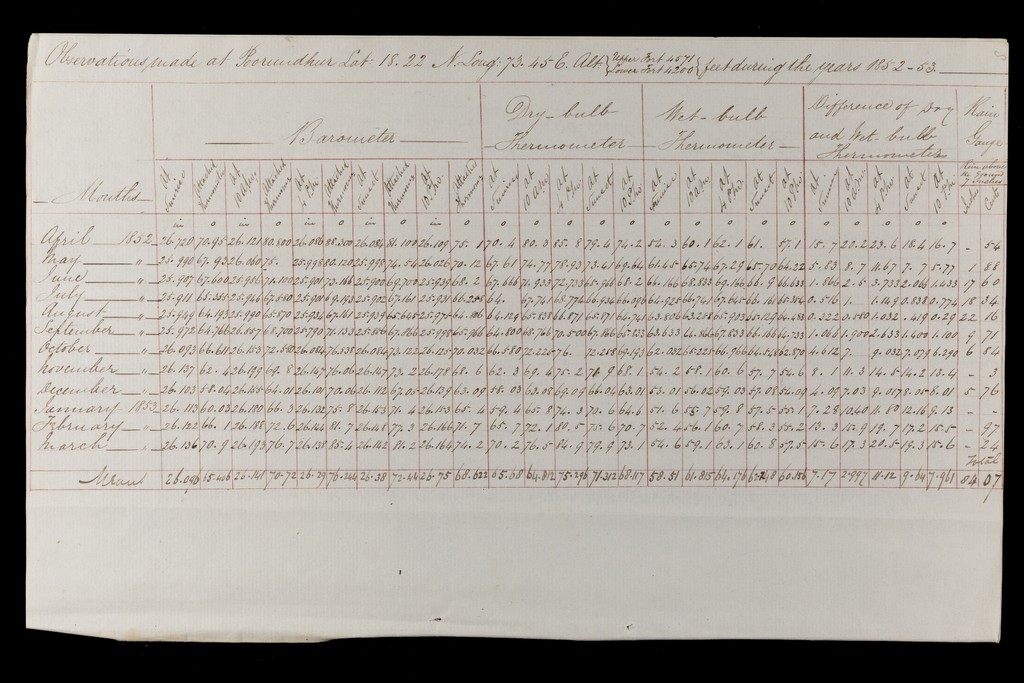 Observations made at Poorundhur Lat: 18. 22 N. Long: 73. 45 E. Alt. {Upper Fort 4571 Lower Fort 4200} feet during the years 1852-53.
Months Barometer Dry-bulb Thermometer Wet-bulb Thermometer Difference of Dry and Wet-bulb Thermometers Rain Gauge
At Sunrise Attached Thermometer At 10 A.M. Attached Thermometer At 4 P.M. Attached Thermometer At Sunset Attached Thermometer At 10 P.M. Attached Thermometer At Sunrise At 10 A.M. At 4 P.M. At Sunset At 10 P.M. At Sunrise At 10 A.M. At 4 P.M. At Sunset At 10 P.M. At Sunrise At 10 A.M. At 4 P.M. At Sunset At 10 P.M. Rim above the Ground 7 Inches Inches Cents
in o in o in o in o in o o o o o o o o o o o o o o o o
April 1852 26.120 70.95 26.121 80.800 26.086 88.300 26.084 81.100 26.109 75.1 70.4 80.3 85.8 79.4 74.2 54.3 60.1 62.1 61. 57.1 15.7 20.2 23.6 18.4 16.7 - 54
May " 25.990 67.93 26.060 75. 25.998 80.120 25.998 74.54 26.026 70.12 67.61 74.77 78.93 73.41 69.64 61.45 65.74 67.29 65.70 64.22 5.83 8.7 11.67 7.7 5.77 1 88
June " 71.100 73.166 69.700 68.2 71.933 72.733 68.2 66.166 68.833 69.166 66.9 66.633 1.866 2.5 3.733 2.066 1.433 17 60
July " 25.911 65.353 25.946 67.580 25.901 69.193 25.902 67.161 25.931 64. 67.741 68.774 66.934 66.096 64.925 66.741 67.645 66.161 0.516 1. 1.149 0.838 0.774 18 34
August " 25.949 64.193 25.990 65.870 25.934 67.161 25.939 65.645 25.971 64.129 65.838 66.871 65.871 64.741 63.806 63.258 65.903 65.129 64.483 0.322 0.580 1.032 .419 0.29 22 16
September " 25.972 68.700 71.133 64.800 68.766 70.500 63.633 67.833 66.166 64.733 1.066 1.900 2.633 1.400 1.100 9 71
October " 26.093 66.611 26.153 72.580 26.084 76.838 26.084 73.122 26.125 70.032 66.580 72.225 76. 72.258 69.193 62.032 65.225 66.966 4.612 7. 9.032 7.079 6.290 6 84
November " 26.137 62.4 69.8 26.147 76.0 73.2 26.178 68.6 62.3 69.4 75.2 68.1 54.2 58.1 60.6 57.7 54.6 8.1 11.3 14.5 14.2 13.4 - 3
December " 26.103 58.04 26.155 64.01 26.101 70.06 26.112 67.05 26.139 63.09 58.03 63.08 69.09 66.04 63.01 53.01 56.02 59.03 57.08 54.09 4.09 7.03 9.01 8.01 5 76
January 1853 26.113 60.03 26.180 66.3 26.132 75.8 26.153 71.4 26.153 65.4 59.4 65.8 74.3 70.6 64.6 51.6 55.7 59.8 57.5 55.1 7.28 10.40 11.80 12.16 9.13 - -
February " 26.122 66.1 26.188 72.6 26.146 81.7 26.148 77.3 26.166 71.7 65.7 72.1 80.5 75.6 70.7 52.4 56.1 60.7 58.3 55.2 13.3 15.9 19.7 17.2 15.5 - 97
March " 26.136 70.9 26.193 76.7 26.138 85.4 26.142 81.2 26.164 74.2 70.2 76.5 84.9 79.9 73.1 54.6 59.1 63.1 60.8 57.5 15.6 17.3 20.5 19.3 15.6 - 24
Total
Means 26.096 65.406 26.141 70.72 26.29 76.244 26.38 72.44 26.75 68.622 65.68 64.812 75.296 71.312 68.117 58.51 61.815 64.176 60.156 7.17 2.997 11.12 9.64 7.961 84 07